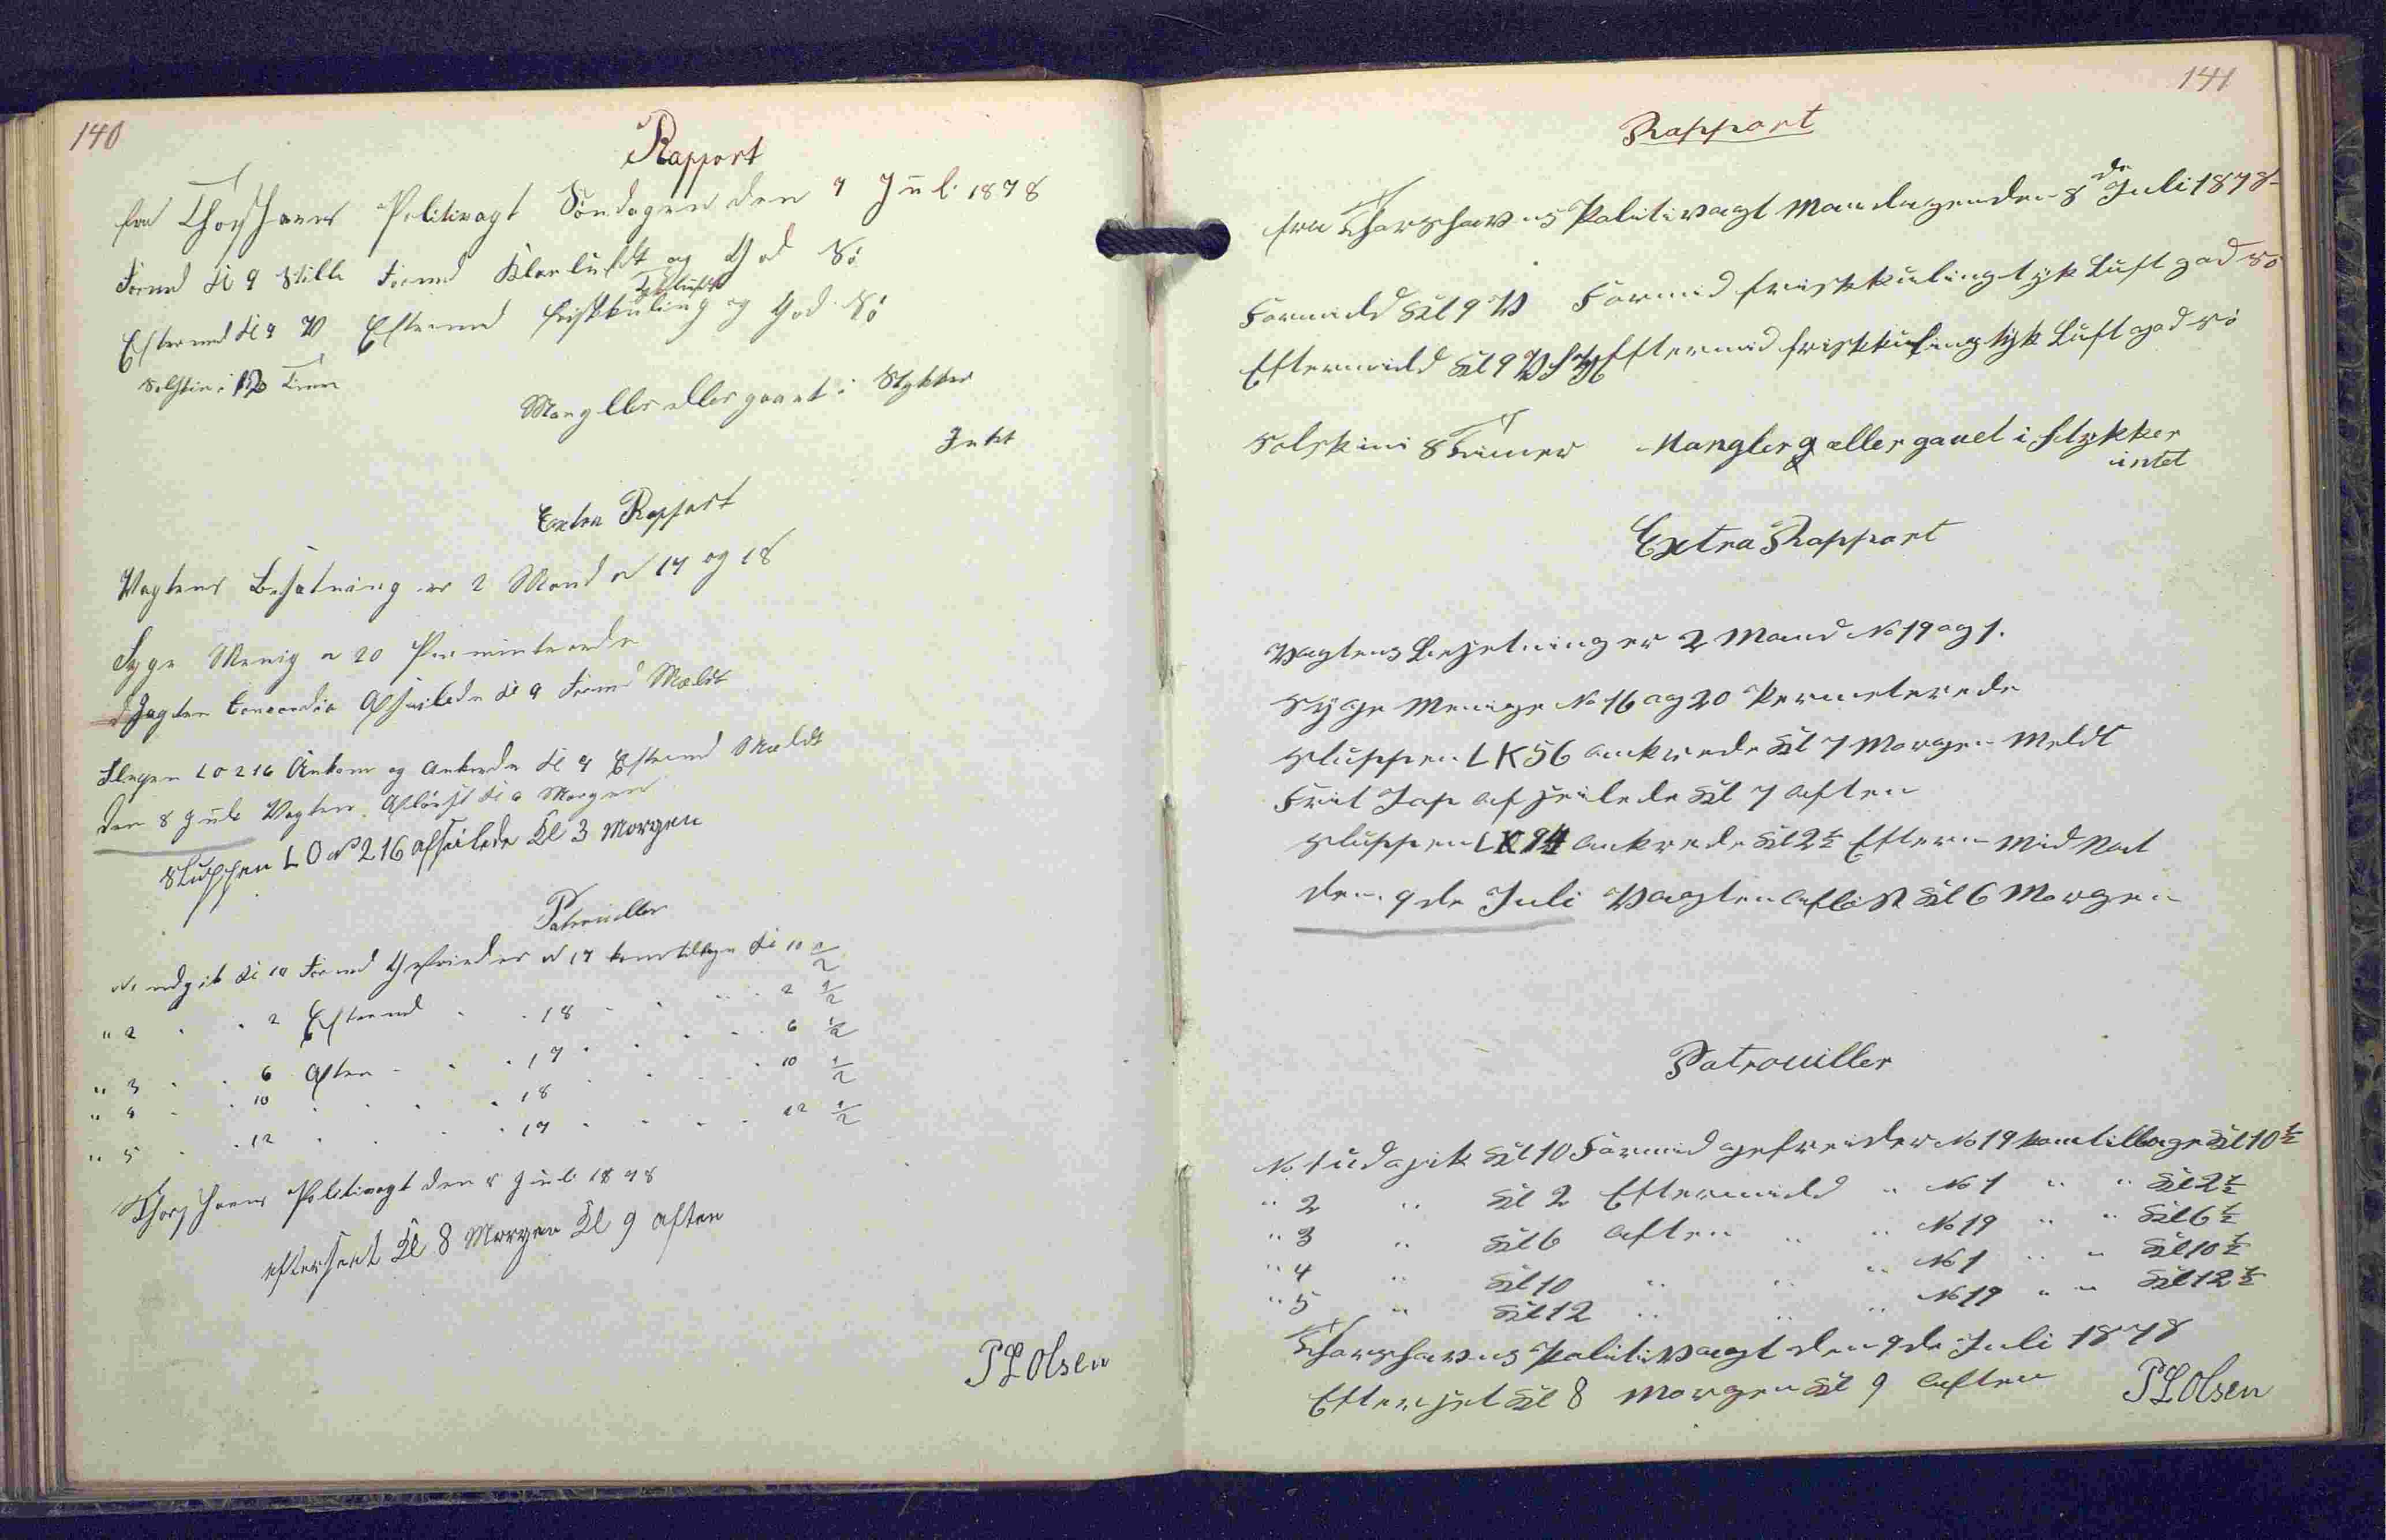 140
Rapport
fra Thorshavns Politivagt Søndagen den 7 Juli 1878
Formd Kl 9 Stille Formd Klarluft og God Sø
Tykluft
Eftermd Kl 9 V Eftermd friskkuling og God Sø
Solskin i 12 Timer
Mangller eller gaaet i Stykker
Intet
Extra Rapport
Vagtens Besætning er 2 Mand № 17 og 18
Syge Menig № 20 Perminterede
Jagten Concordia Afseilede Kl 9 Formd Meldt
Slupen LO 216 Ankom og ankrede Kl 9 Eftermd Meldt
den 8 Juli Vagten Afløst Kl 6 Morgen
Sluppen LO № 216 afseilede Kl 3 Morgen
Patrouiller
№ 1 udgik Kl 10 Formd Gefreider № 17 kom tilbage Kl 10 1/2
" 2 " " 2 Eftermd " " 18 " " " 2 1/2
" 3 " " 6 Aften " " 17 " " " 6 1/2
" 4 " " 10 " " " 18 " " " 10 1/2
" 5 " " 12 " " " 17 " " " 12 1/2
Thorshavns Politivagt den 8 Juli 1878
efterseet Kl 8 Morgen Kl 9 aften
P L Olsen
141
Rapport
fra Thorshavns Politivagt Mandagen den 8de Juli 1878
Formidd Kl 9 V Formid friskkuling tyk Luft god sø
Eftermidd Kl 9 Eftermid friskkuling tyk Luft god sø
Solskin i 8 Timer Mangler eller gaaet i Stykker
intet
Extra Rapport
Vagtens Besetning er 2 Mand No 19 og 1.
Syge Menige No 16 og 20 Permeterede
Sluppen LK 56 ankrede Kl 7 Morgen Meldt
Afseilede Kl 7 Aften
Sluppen ankrede Kl 2 1/2 Efter Mid Nat
den 9de Juli Vagten Afløst Kl 6 Morgen
Patrouiller
No 1 udgik Kl 10 Formid gefreider No 19 kom tilbage Kl 10 1/2
" 2 " Kl 2 Eftermidd " No 1 " " Kl 2 1/2
" 3 " Kl 6 Aften " " No 19 " " Kl 6 1/2
" 4 " Kl 10 " " " No 1 " " Kl 10 1/2
" 5 " Kl 12 " " " No 19 " " Kl 12 1/2
Thorshavns Politivagt den 9de Juli 1878
Efterset Kl 8 Morgen Kl 9 Aften P L Olsen